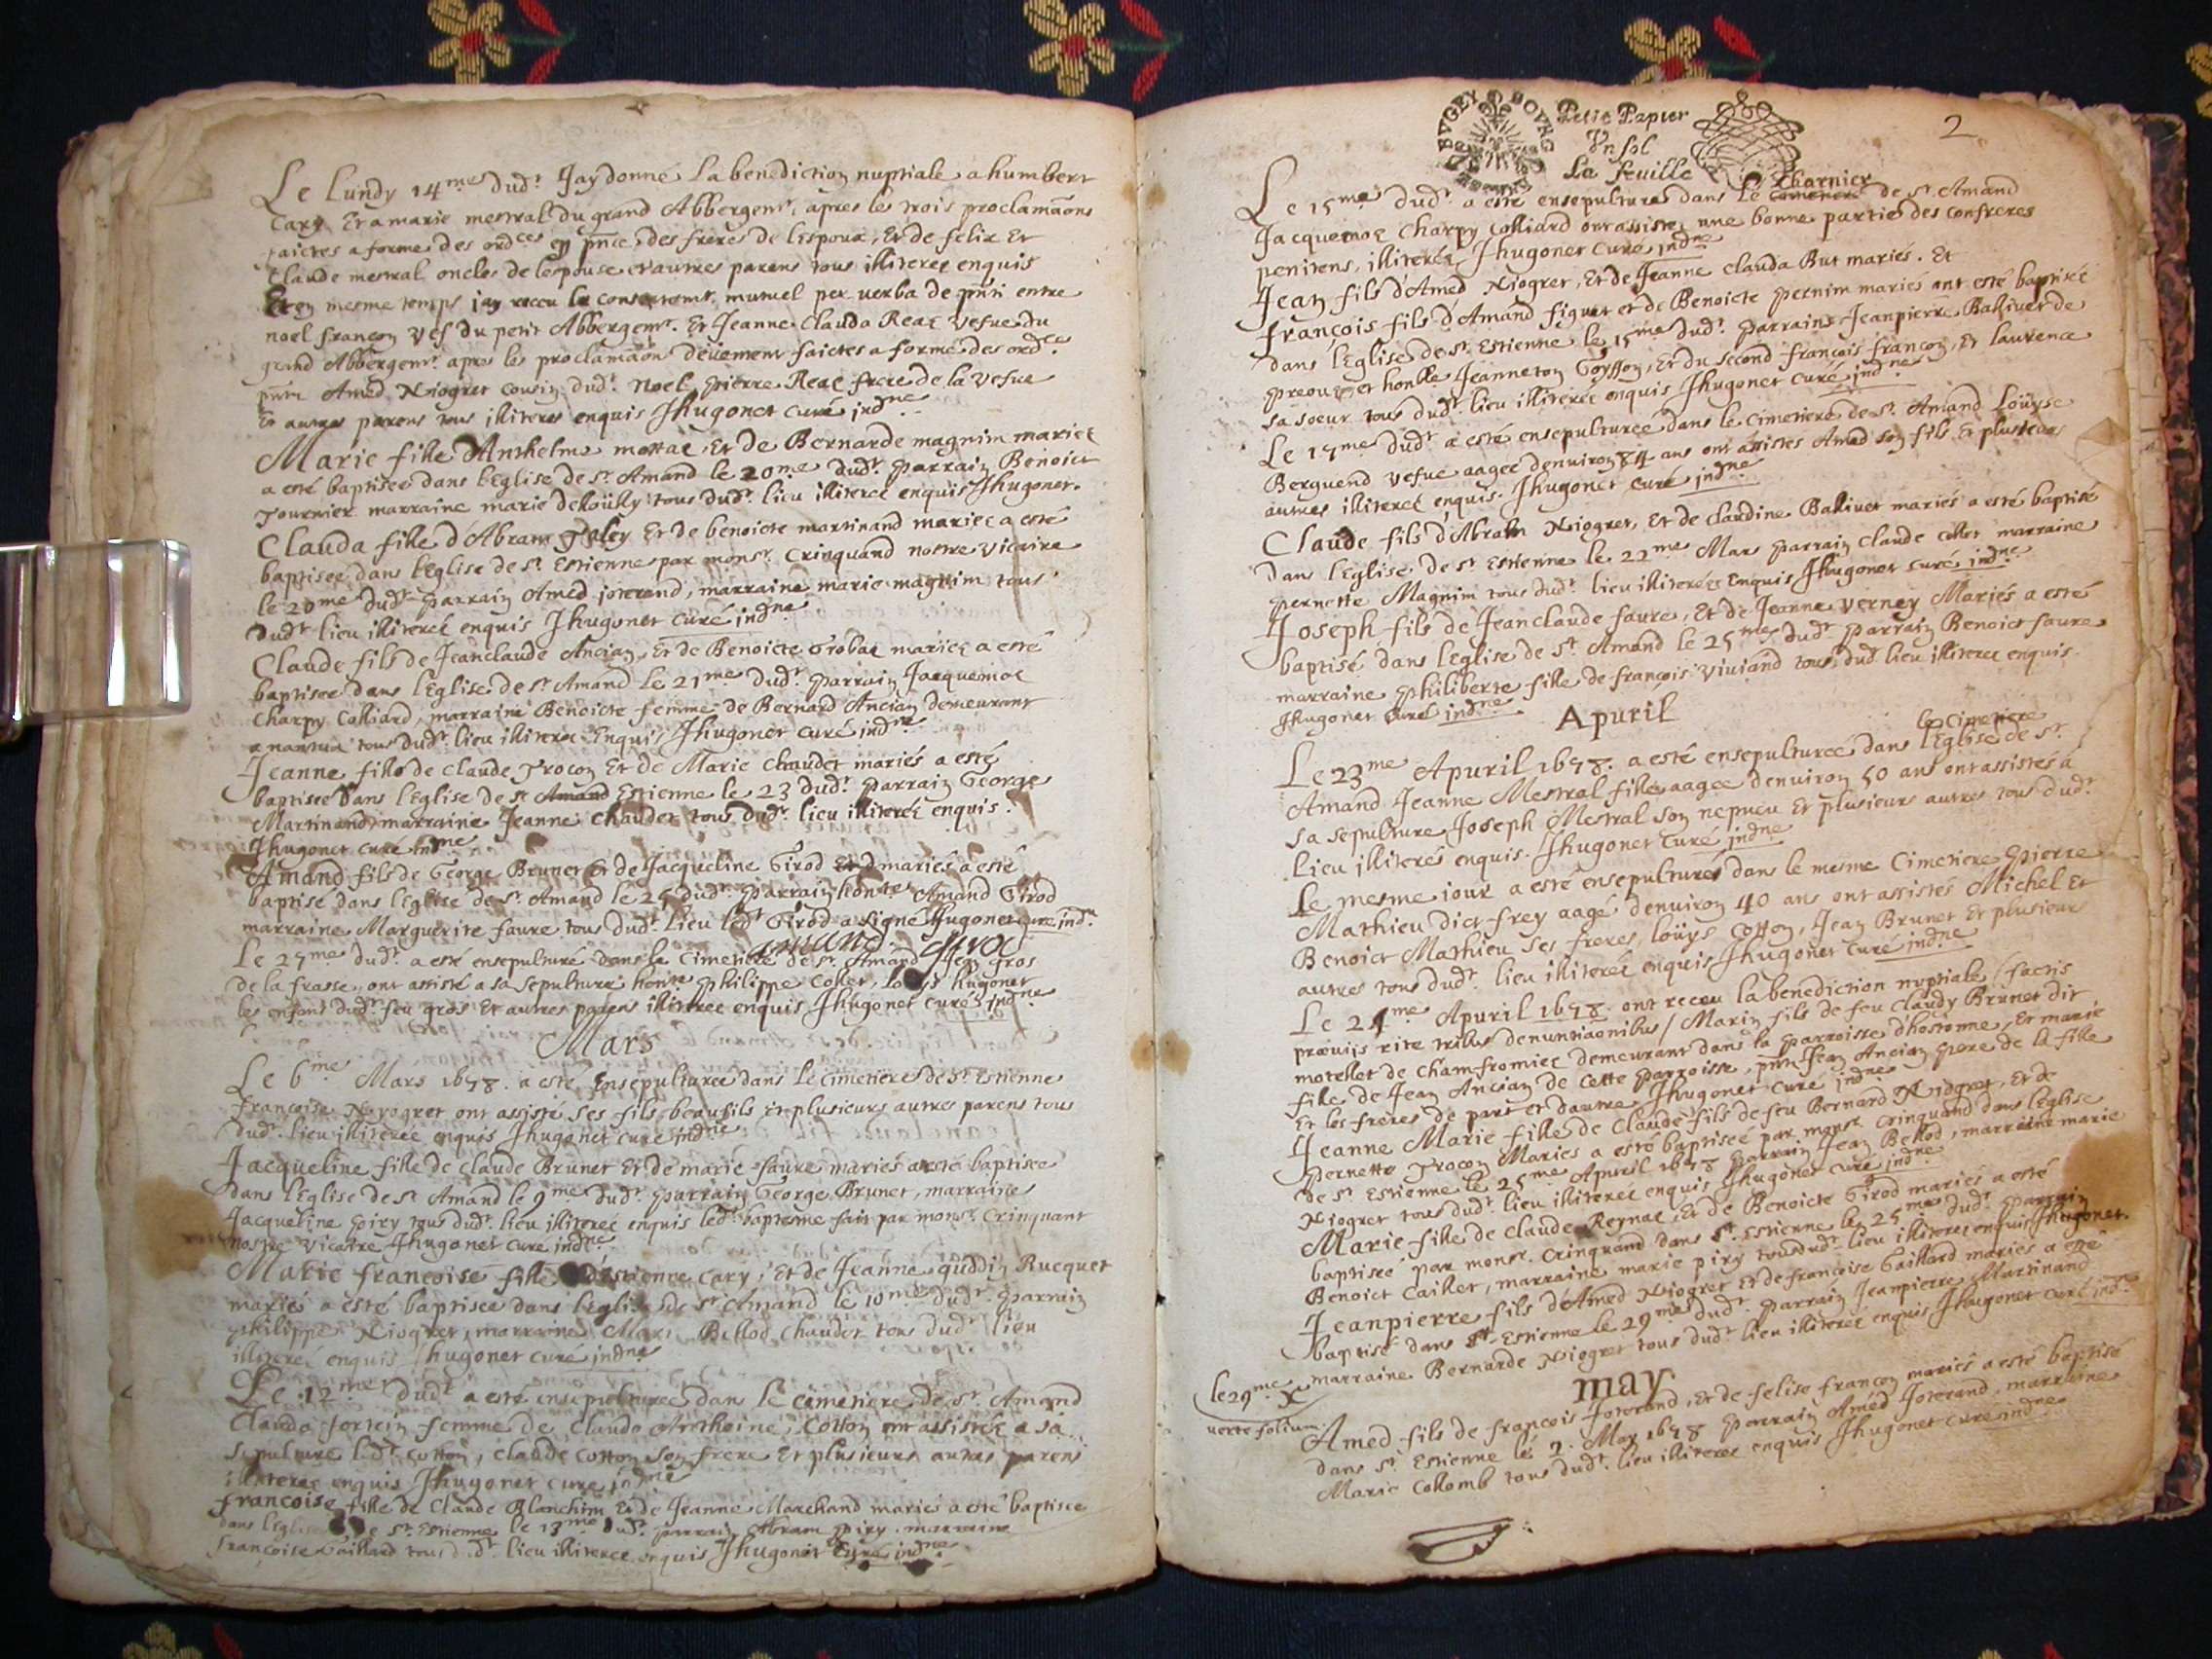 Le Lundy 14me dudt Jay donné La benediction nuptiale a humbert
Cary Et a marie mestral du grand Abbergemt apres les trois proclamaons
faictes a forme des ordces en pnce des freres de Lespoux, Et de felix Et
Claude mestral oncles de lespouse et autres parens tous illiterez enquis
Et en mesme temps jay receu le consentemt mutuel per verba de pnti entre
noel françon vef du petit Abbergemt. Et Jeanne Clauda Reac vefue du
grand Abbergemt apres les proclamaon deüement faictes a forme des ordces
pnts Amed Niogret cousin dudt Noel pierre Reac frere de la vefue
Et autres parens tous illiteres enquis Jhugonet curé indne
Marie fille dAnthelme mottac, Et de Bernarde magnim mariez
a esté baptisée dans lEglise de st Amand le 20me dudt parrain Benoict
Tournier marraine marie tous dudt lieu illiterez enquis Jhugonet.
Clauda fille d'Abram Et de benoicte martinand mariez a esté
baptisée dans lEglise de st Estienne par monsr Crinquand nostre vicaire
le 20me dudt parrain Amed joterand, marraine marie magnim tous
dudt lieu illiterez enquis Jhugonet curé indne
Claude fils de Jeanclaude Ancian, Et de Benoicte Grobac mariez a esté
baptisée dans lEglise de st Amand le 21me dudt parrain Jacquemoz
Charpy Colliard, marraine Benoicte femme de Bernard Ancian demeurant
a nantua tous dudt lieu illiterez Enquis Jhugonet curé indne
Jeanne fille de Claude Procon Et de Marie Chaudet mariés a esté
baptisée dans lEglise de st Amand Estienne le 23 dudt parrain George
Martinand, marraine Jeanne Chaudet tous dudt lieu illiterez enquis.
Jhugonet curé indne
Amand fils de George Brunet Et de Jacqueline Girod mariés a esté
baptisé dans lEglise de st Amand le 25 dudt parrain honte Amand Girod
marraine Marguerite faure tous dudt Lieu ledt Girod a signé Jhugonet cure indn
Amand Girod
Le 27me dudt a esté ensepulturé dans le Cimetiere de st Amand Jean gros
de la frasse, ont assisté a sa sepulture honte philippe Collet, Loüys hugonet
les enfans dudt feu gros Et autres parens illiterez enquis Jhugonet curé indne
Mars
Le 6me Mars 1678. a esté Ensepulturee dans Le Cimetiere de st Estienne
françoise Nyogret ont assisté ses fils beaufils Et plusieurs autres parens tous
dudt lieu illiterez enquis Jhugonet curé indne
Jacqueline fille de Claude Brunet Et de marie faure mariés a esté baptisée
dans lEglise de st Amand le 9me dudt parrain George Brunet, marraine
Jacqueline piry tous dudt lieu illiterez enquis ledt baptesme fait par monsr Crinquant
nostre vicaire Jhugonet cure indne
Marie françoise fille dEstienne Cary, Et de Jeanne Rucquet
mariés a esté baptisée dans lEglise de st Amand le 10me dudt parrain
philippe Niogret, marraine Marie Bellod Chaudet tous dudt lieu
illiterez enquis Jhugonet curé indne
Le 12me dudt a esté ensepulturee dans le cimetiere de st Amand
Clauda femme de Claude Anthoine Cotton ont assistez a sa
sepulture ledt Cotton, Claude Cotton son frere Et plusieurs autres parens
illiterez enquis Jhugonet cure indne
françoise fille de Claude Blanchim Et de Jeanne Marchand mariés a esté baptisée
dans lEglise de st Estienne le 13me dudt parrain Abram piry, marraine
françoise Gaillard tous dudt lieu illiterez enquis Jhugonet Curé indne
BVGEY BOVRG
Petit Papier
Vn sol
La feuille
2
Le 15me dudt a esté ensepulturé dans Le Cimetiere Charnier de st Amand
Jacquemoz Charpy Colliard ont assistez une bonne partie des confreres
penitens, illiterez Jhugonet curé indne
Jean fils d'Amed Niogret, Et de Jeanne Clauda But mariés. Et
françois fils d'Amand figuet et de Benoicte pernim mariés ont esté baptisez
dans lEglise de st Estienne le 15me dudt parrains Jeanpierre Ballivet de
preoux et honble Jeanneton Goyffon, Et du second françois françon, Et laurence
sa soeur tous dudt lieu illiterez enquis Jhugonet curé indne
Le 17me dudt a esté ensepulturée dans le cimetiere de st Amand Loüyse
Berguend vefue aagee denuiron 84 ans ont assistés Amed son fils Et plusieurs
autres illiterez enquis. Jhugonet curé indne
Claude fils d'Abram Niogret, Et de Claudine Ballivet mariés a esté baptisé
dans lEglise de st Estienne le 22me Mars parrain Claude Collet marraine
pernette Magnim tous dudt lieu illiterez Enquis Jhugonet curé indne
Joseph fils de Jeanclaude faure, Et de Jeanne Verney Mariés a esté
baptisé dans lEglise de st Amand le 25me dudt parrain Benoict faure
marraine philiberte fille de françois viuiand tous dud lieu illiterez enquis
Jhugonet curé indne
Apuril
le Cimetiere
Le 23me Apuril 1678. a esté ensepulturée dans lEglise de st
Amand Jeanne Mestral fille aagee denuiron 50 ans ont assistés a
sa sepulture Joseph Mestral son nepueu Et plusieurs autres tous dudt
Lieu illiterés enquis. Jhugonet Curé indne
Le mesme iour a esté ensepulturés dans le mesme Cimetiere pierre
Mathieu dict frey aagé denuiron 40 ans ont assistés Michel Et
Benoict Mathieu ses freres, loüys Cotton, Jean Brunet Et plusieurs
autres tous dudt lieu illiterez enquis Jhugonet curé indne
Le 24me Apuril 1678 ont receu la benediction nuptiale / factis
præuijs rite tribus denuntiaonibus / Marin fils de feu Claudy Brunet dit
motellet de Chamfromiez demeurant dans la parroisse d'hostonne, Et marie
fille de Jean Ancian de Cette parroisse, pnts Jean Ancian pere de la fille
Et les freres de part et dautre Jhugonet curé indne
Jeanne Marie fille de Claude fils de feu Bernard Niogret, Et de
pernette Procon Mariés a esté baptisée par monsr Crinquand dans lEglise
de st Estienne le 25me Apuril 1678 parrain Jean Bellod, marraine marie
Niogret tous dudt lieu illiterez enquis Jhugonet curé indne
Marie fille de Claude Reynac, Et de Benoicte Girod mariés a esté
baptisée par monsr Crinquand dans st Estienne le 25me dudt parrain
Benoict Caillet, marraine marie piry tous dudt lieu illiterez enquis Jhugonet.
Jeanpierre fils d'Amed Niogret Et de françoise Gaillard mariés a esté
baptisé dans st Estienne le 29me dudt parrain Jeanpierre Martinand
marraine Bernarde Niogret tous dudt lieu illiterez enquis Jhugonet curé indne
le 29me X
verte folium
may
Amed fils de françois Joterand, Et de felise françon mariés a esté baptisé
dans st Estienne le 2. May 1678 parrain Amed Joterand, marraine
Marie Collomb tous dudt lieu illiterez enquis Jhugonet curé indne